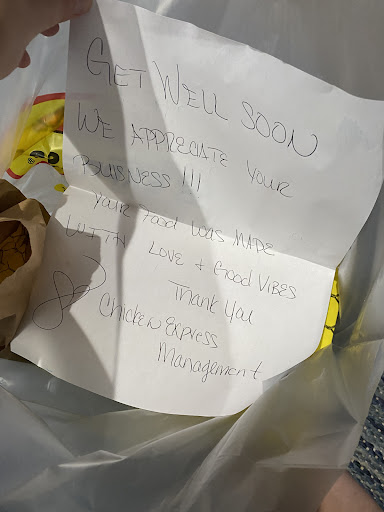 GET WELL SOON
WE APPRECIATE YOUR
BUISNESS!!!
YOUR FOOD WAS MADE
WITH LOVE + GOOD VIBES
THANK YOU
Chicken Express
Management